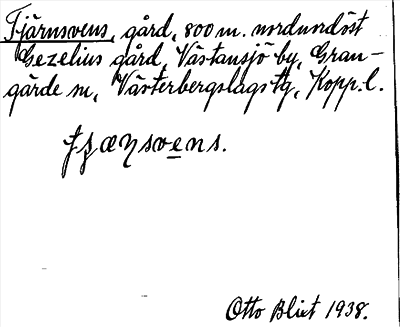 Tjärnsvens, gård, 800 m. nordnordöst
Gezelius gård, Västansjö by, Gran-
gärde sn, Västerbergslags tg, Kopp. l.
Otto Blixt 1938.